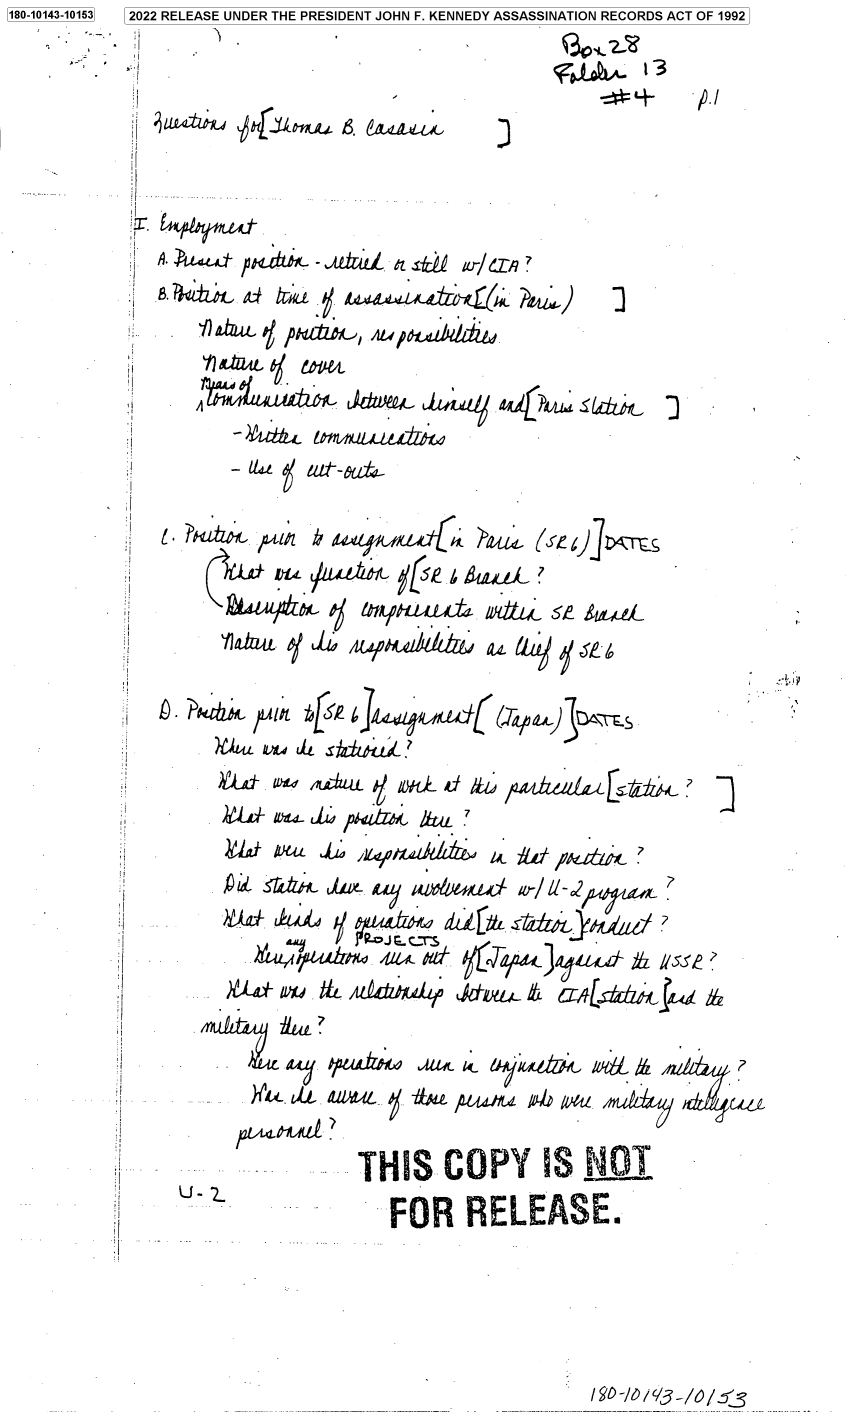 180-10143-10153
2022 RELEASE UNDER THE PRESIDENT JOHN F. KENNEDY ASSASSINATION RECORDS ACT OF 1992
Box 28
Folder 13
#4 p.1
Questions for [Thomas B. Casasin ]
I. Employment
A. Present position - retried or still w/ CIA?
B. Position at time of assassination [(in Paris) ]
Nature of position, responsibilities
Nature of cover
Means of
Communication between himself and [Paris Station ]
- Written communications
- Use of cut-outs
C. Position prior to assignment [in Paris (SR6)] DATES
What was function of [SR 6 Branch?
Description of components within SR Branch
Nature of his responsibilities as Chief of SR 6
D. Position prior to [SR 6] assignment [(Japan)] DATES
Where was he stationed?
What was nature of work at this particular [station? ]
What was his position there?
What were his responsibilities in that position?
Did station have any involvement w/ U-2 program?
What kinds of operations did [the station] conduct?
any PROJECTS
Were operations run out of [Japan] against the USSR?
What was the relationship between the CIA [station] and the
military there?
Were any operations run in conjunction with the military?
Was he aware of those persons who were military intelligence
personnel?
THIS COPY IS NOT
FOR RELEASE.
U-2
180-10143-10153